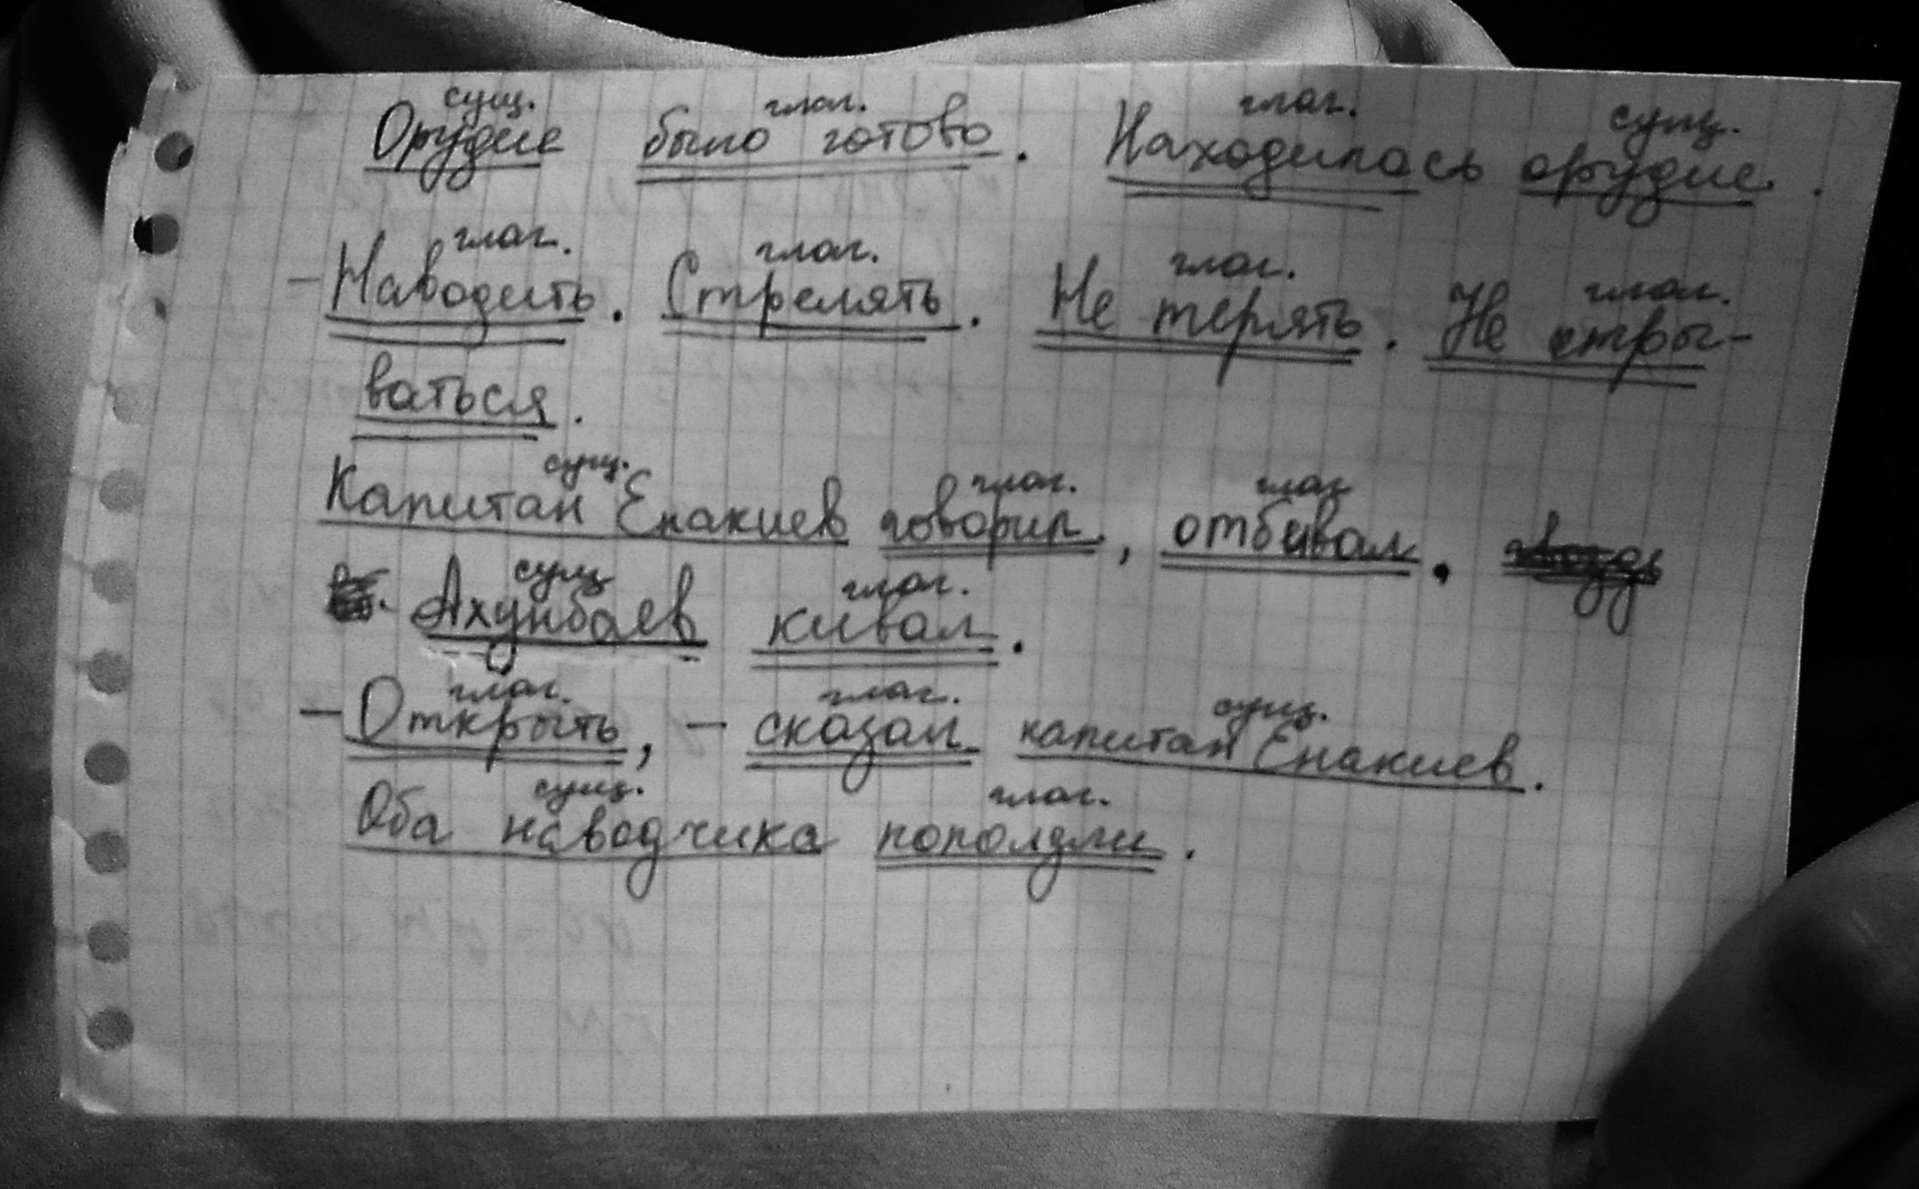 сущ. глаг. глаг. сущ.
Орудие было готово. Находилась орудие.
глаг. глаг. глаг. глаг.
- Наводить. Стрелять. Не терять. Не отры-
ваться.
сущ. глаг. глаг
Капитан Енакиев говорил, отбивал.
сущ глаг.
Ахунбаев кивал.
глаг. глаг. сущ.
- Открыть, - сказал капитан Енакиев.
сущ. глаг.
Оба наводчика поползли.